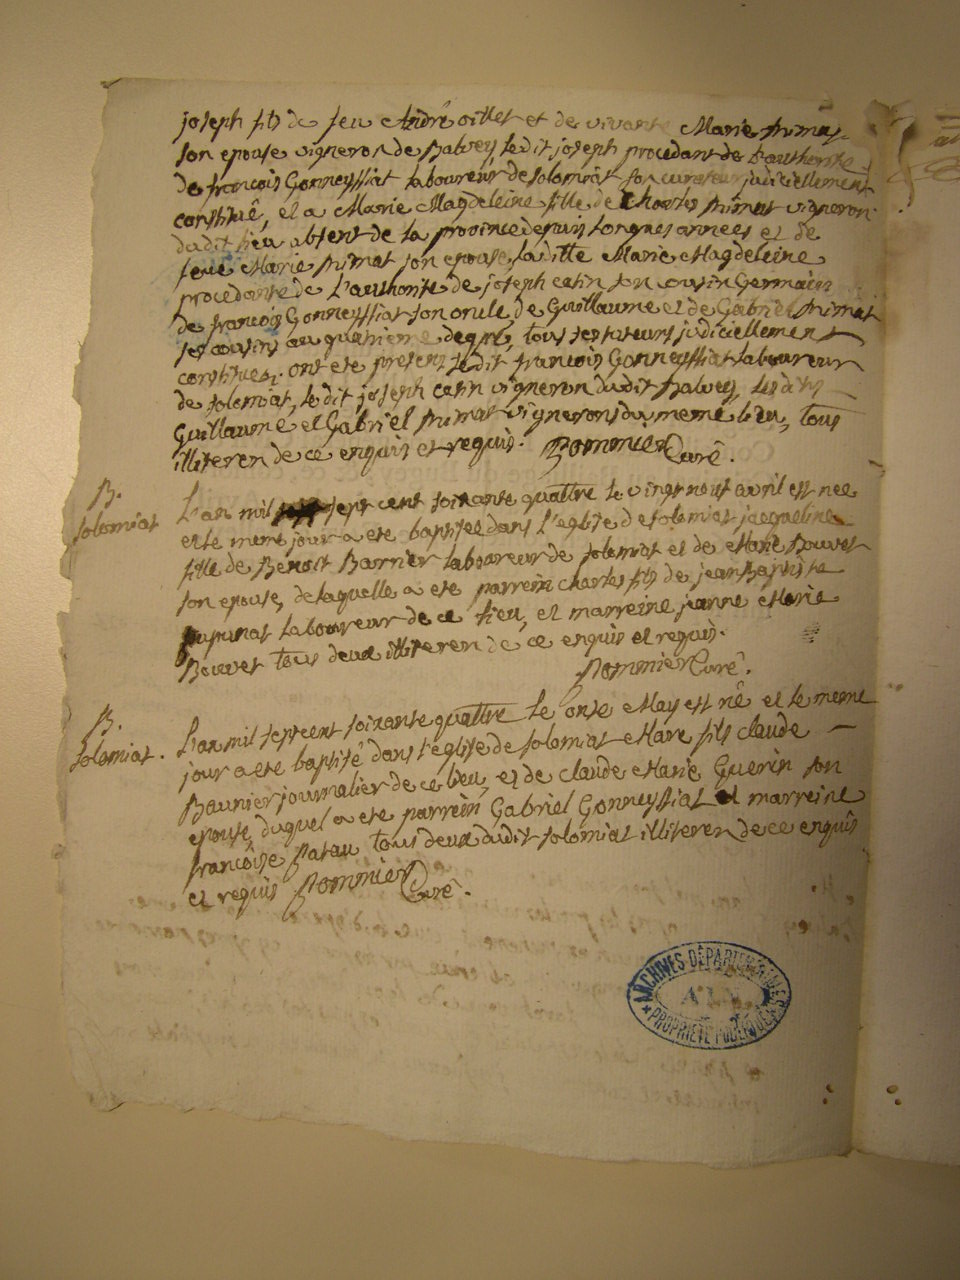 joseph fils de feu André oillet et de vivante Marie thimat
son epouse vigneron de Balvey ledit joseph procedant de l'authorite
de francois Gonneyssiat laboureur de solomiat son curateur judiciellement
constitué, et a Marie Magdeleine fille de Charles thimat vigneron
dudit lieu absent de la province depuis longues annees et de
feue Marie thimat son epouse, laditte Marie Magdeleine
procedante de l'authorite de joseph cesin son cousin Germain
de francois Gonneyssiat son oncle, de Guillaume et de Gabriel thimat
ses cousins au quatrieme degré, tous testateurs judiciellement
constitues. ont ete presens ledit francois Gonneyssiat laboureur
de solemiat, le dit joseph cesin vigneron dudit Balvey, lesdits
Guillaume et Gabriel thimat vignerons du meme lieu, tous
illiteren de ce enquis et requis. Pommier Curé.
B.
solomiat
L'an mil sept cent soixante quattre le vingt neuf avril est nee
et le meme jour a ete baptisee dans l'eglise de solemiat jacqueline
fille de Benoit Barrier laboureur de solemiat et de Marie Bouvet
son epouse, de laquelle a ete parrein Charles fils de jean Baptiste
laboureur de ce lieu, et marreine jeanne Marie
Bouvet tous deux illiteren de ce enquis et requis.
Pommier Curé.
B.
solomiat.
L'an mil sept cent soixante quattre le onze May est né et le meme
jour a ete baptisé dans l'église de solomiat Marc fils claude
Baunier journalier de ce lieu, et de claude Marie Guerin son
epouse, duquel a ete parrein Gabriel Gonneyssiat et marreine
francoise Patau tous deux dudit solomiat illiteren de ce enquis
et requis Pommier Curé.
ARCHIVES DÉPARTEMENTALES
AIN
PROPRIÉTÉ PUBLIQUE